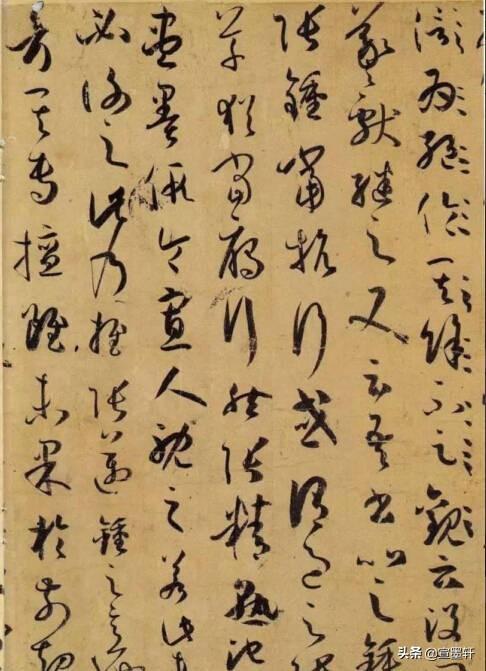 信為絕倫其餘不足觀云沒
羲獻繼之又云吾書比之鍾
張鍾當抗行或謂過之
草猶當鴈行然張精熟池
盡墨假令寡人耽之若此
必謝之此乃推張邁鍾之意
考其專擅雖未果於前規
头条 @宣墨轩